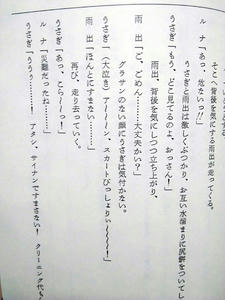 そこへ背後を気にする雨出が走ってくる。
ルナ「あっ、危ないっ!!」
うさぎと雨出は激しくぶつかり、お互い水溜まりに尻餅をついてし
うさぎ「もう、どこ見てるのよ、おっさん!」
雨出、背後を気にしつつ立ち上がり、
雨出「ご、ごめん……大丈夫かい?」
グラサンのない顔にうさぎは気付かない。
うさぎ「(大泣き)アーーーン、スカートびっしょりぃ〜〜〜〜!」
雨出「ほんとにすまない……」
再び、走り去っていく。
うさぎ「あっ、こら〜〜っ!」
ルナ「災難だったね……」
うさぎ「ううう………! アタシ、サイナンですまさない! クリーニング代も